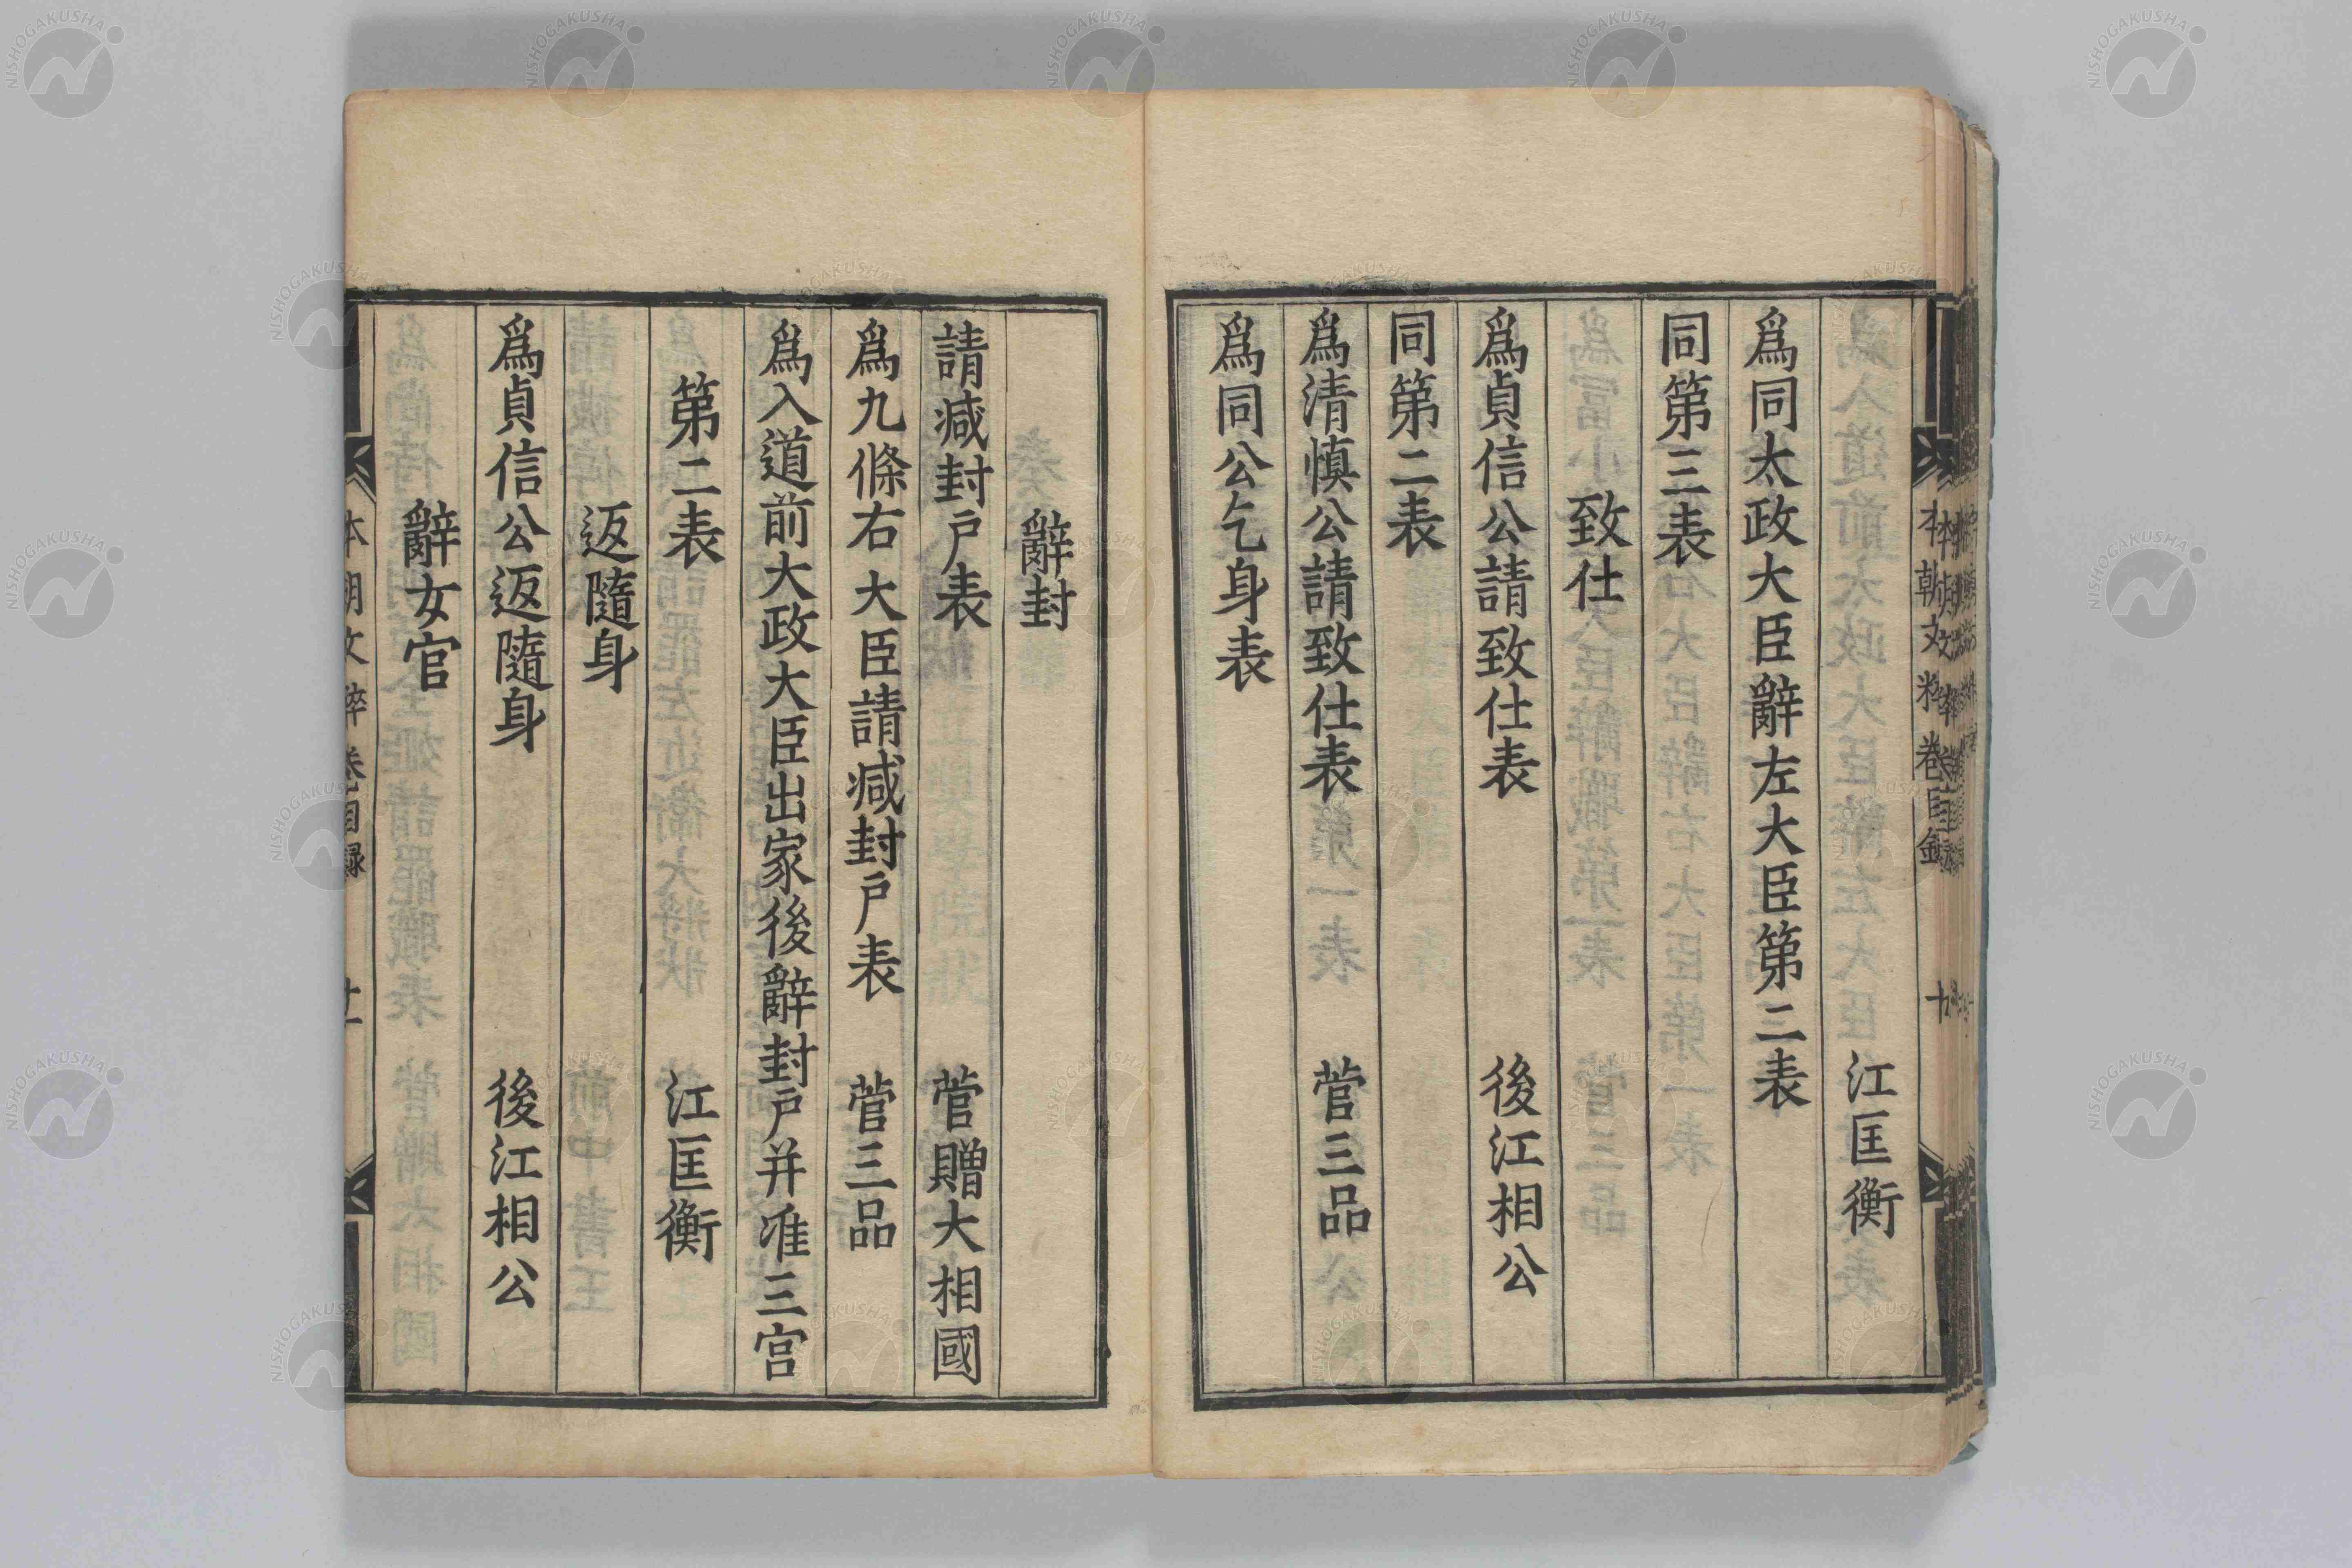 江匡衡
爲同太政大臣辭左大臣第二表
同第三表
致仕
爲貞信公請致仕表 後江相公
同第二表
爲清愼公請致仕表 菅三品
爲同公乞身表
辭封
請减封戸表 菅贈大相國
爲九條右大臣請减封戸表 菅三品
爲入道前大政大臣出家後辭封戸并准三宮
第二表 江匡衡
返隨身
爲貞信公返隨身 後江相公
辭女官
本朝文粹卷目録